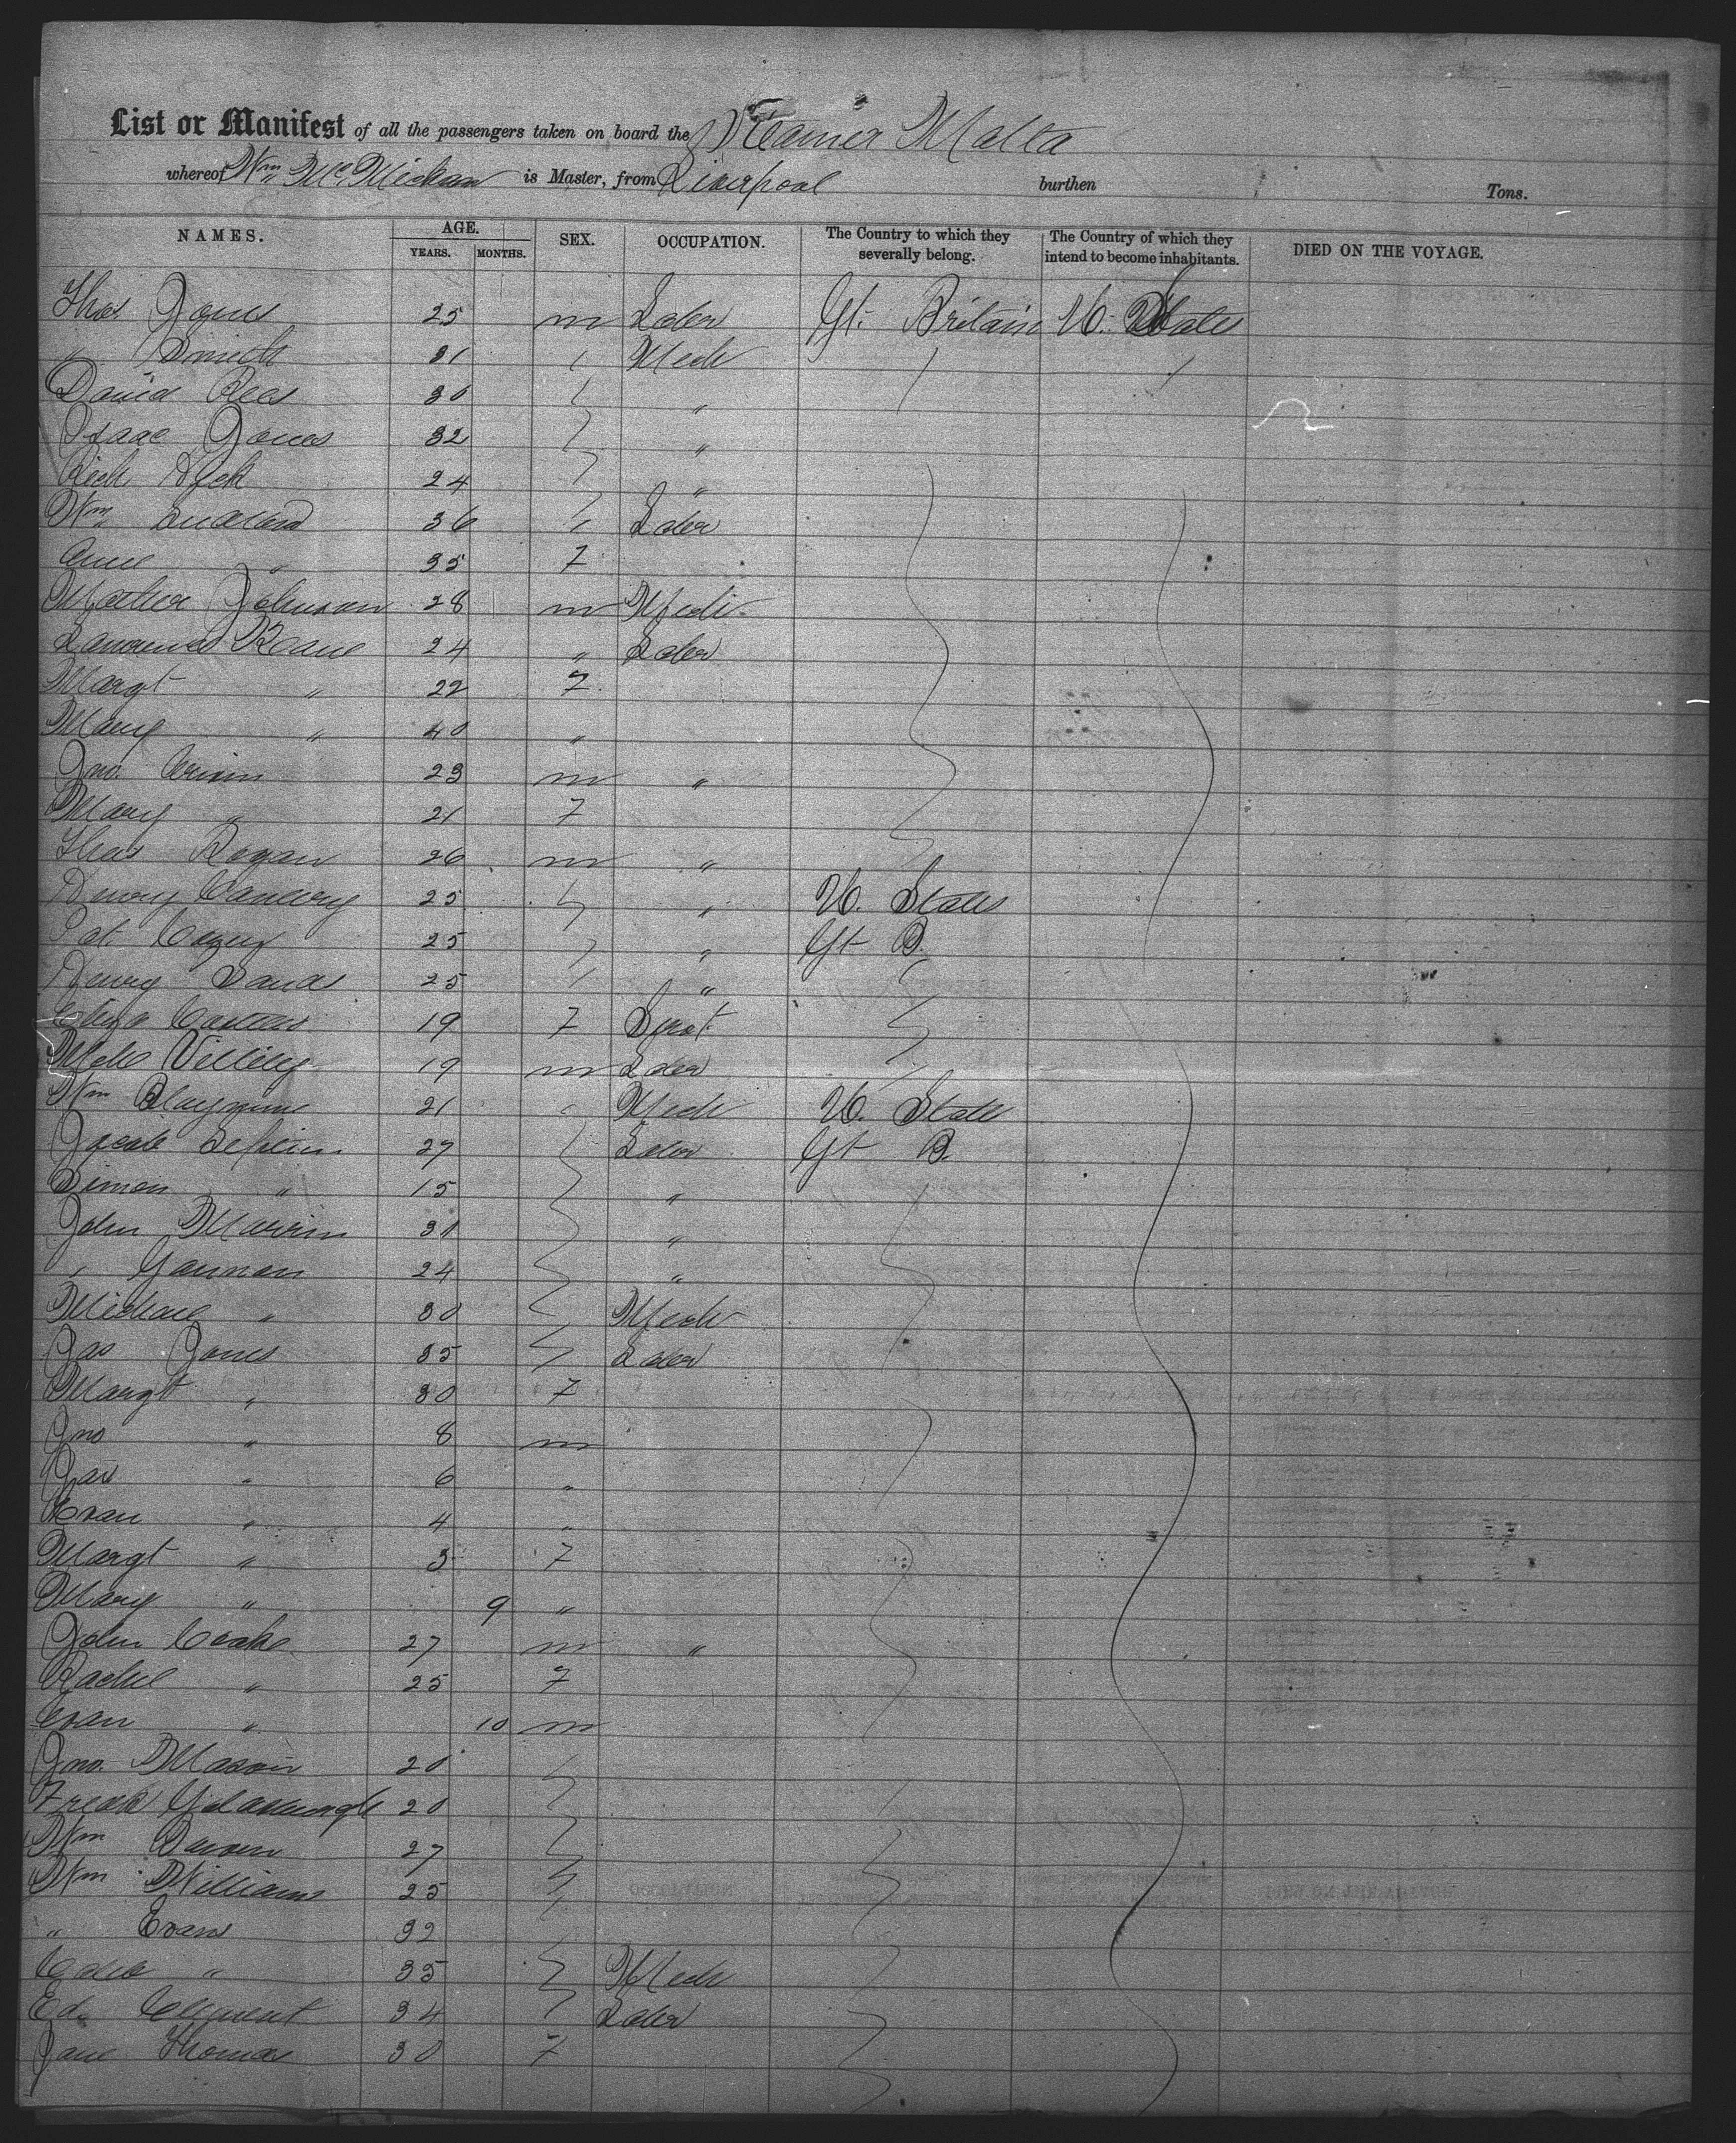 List or Manifest of all the passengers taken on board the Steamer Malta
whereof Wm McMickan is Master, from Liverpool burthen Tons.
NAMES. AGE. YEARS. MONTHS. SEX. OCCUPATION. The Country to which they severally belong. The Country of which they intend to become inhabitants. DIED ON THE VOYAGE.
Thos. Jones 25 m Labr Gt. Britain U. States
" Smith 31 Mech
David Rees 30 "
Isaac Jones 32 "
Rich 24 "
Wm 36 Labr
Anne " 35 F
Johnson 28 m Mech
Lawrence Keane 24 " Labr
Margt " 22 F
Mary " 40 "
Jno. 23 m "
Mary " 21 F
Thos Regan 26 m "
Henry 25 " U. States
Pat. 25 " Gt B.
Henry 25 "
Eliza 19 F Servt
19 m Labr
Wm 21 Mech U. States
Jacob 27 Labr Gt B.
Simon " 15 "
John 31 "
" Gannon 24 "
Michael " 30 Mech
Jas Jones 35 Labr
Margt " 30 F
Jno " 8 m
Jas " 6 "
Evan " 4 "
Margt " 3 F
Mary " 9 "
John Cooke 27 m "
Rachel " 25 F
Evan " 10 m
Jno. Mason 20
Fredk 20
Wm 27
Wm Williams 25
" Evans 32
" 35 Mech
Ed. Clement 34 Labr
Jane Thomas 30 F